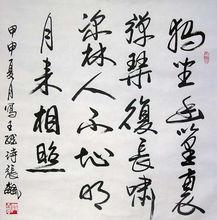 独坐幽篁裏
彈琴復長嘯
深林人不知明
月来相照
甲申夏月寫王維诗張